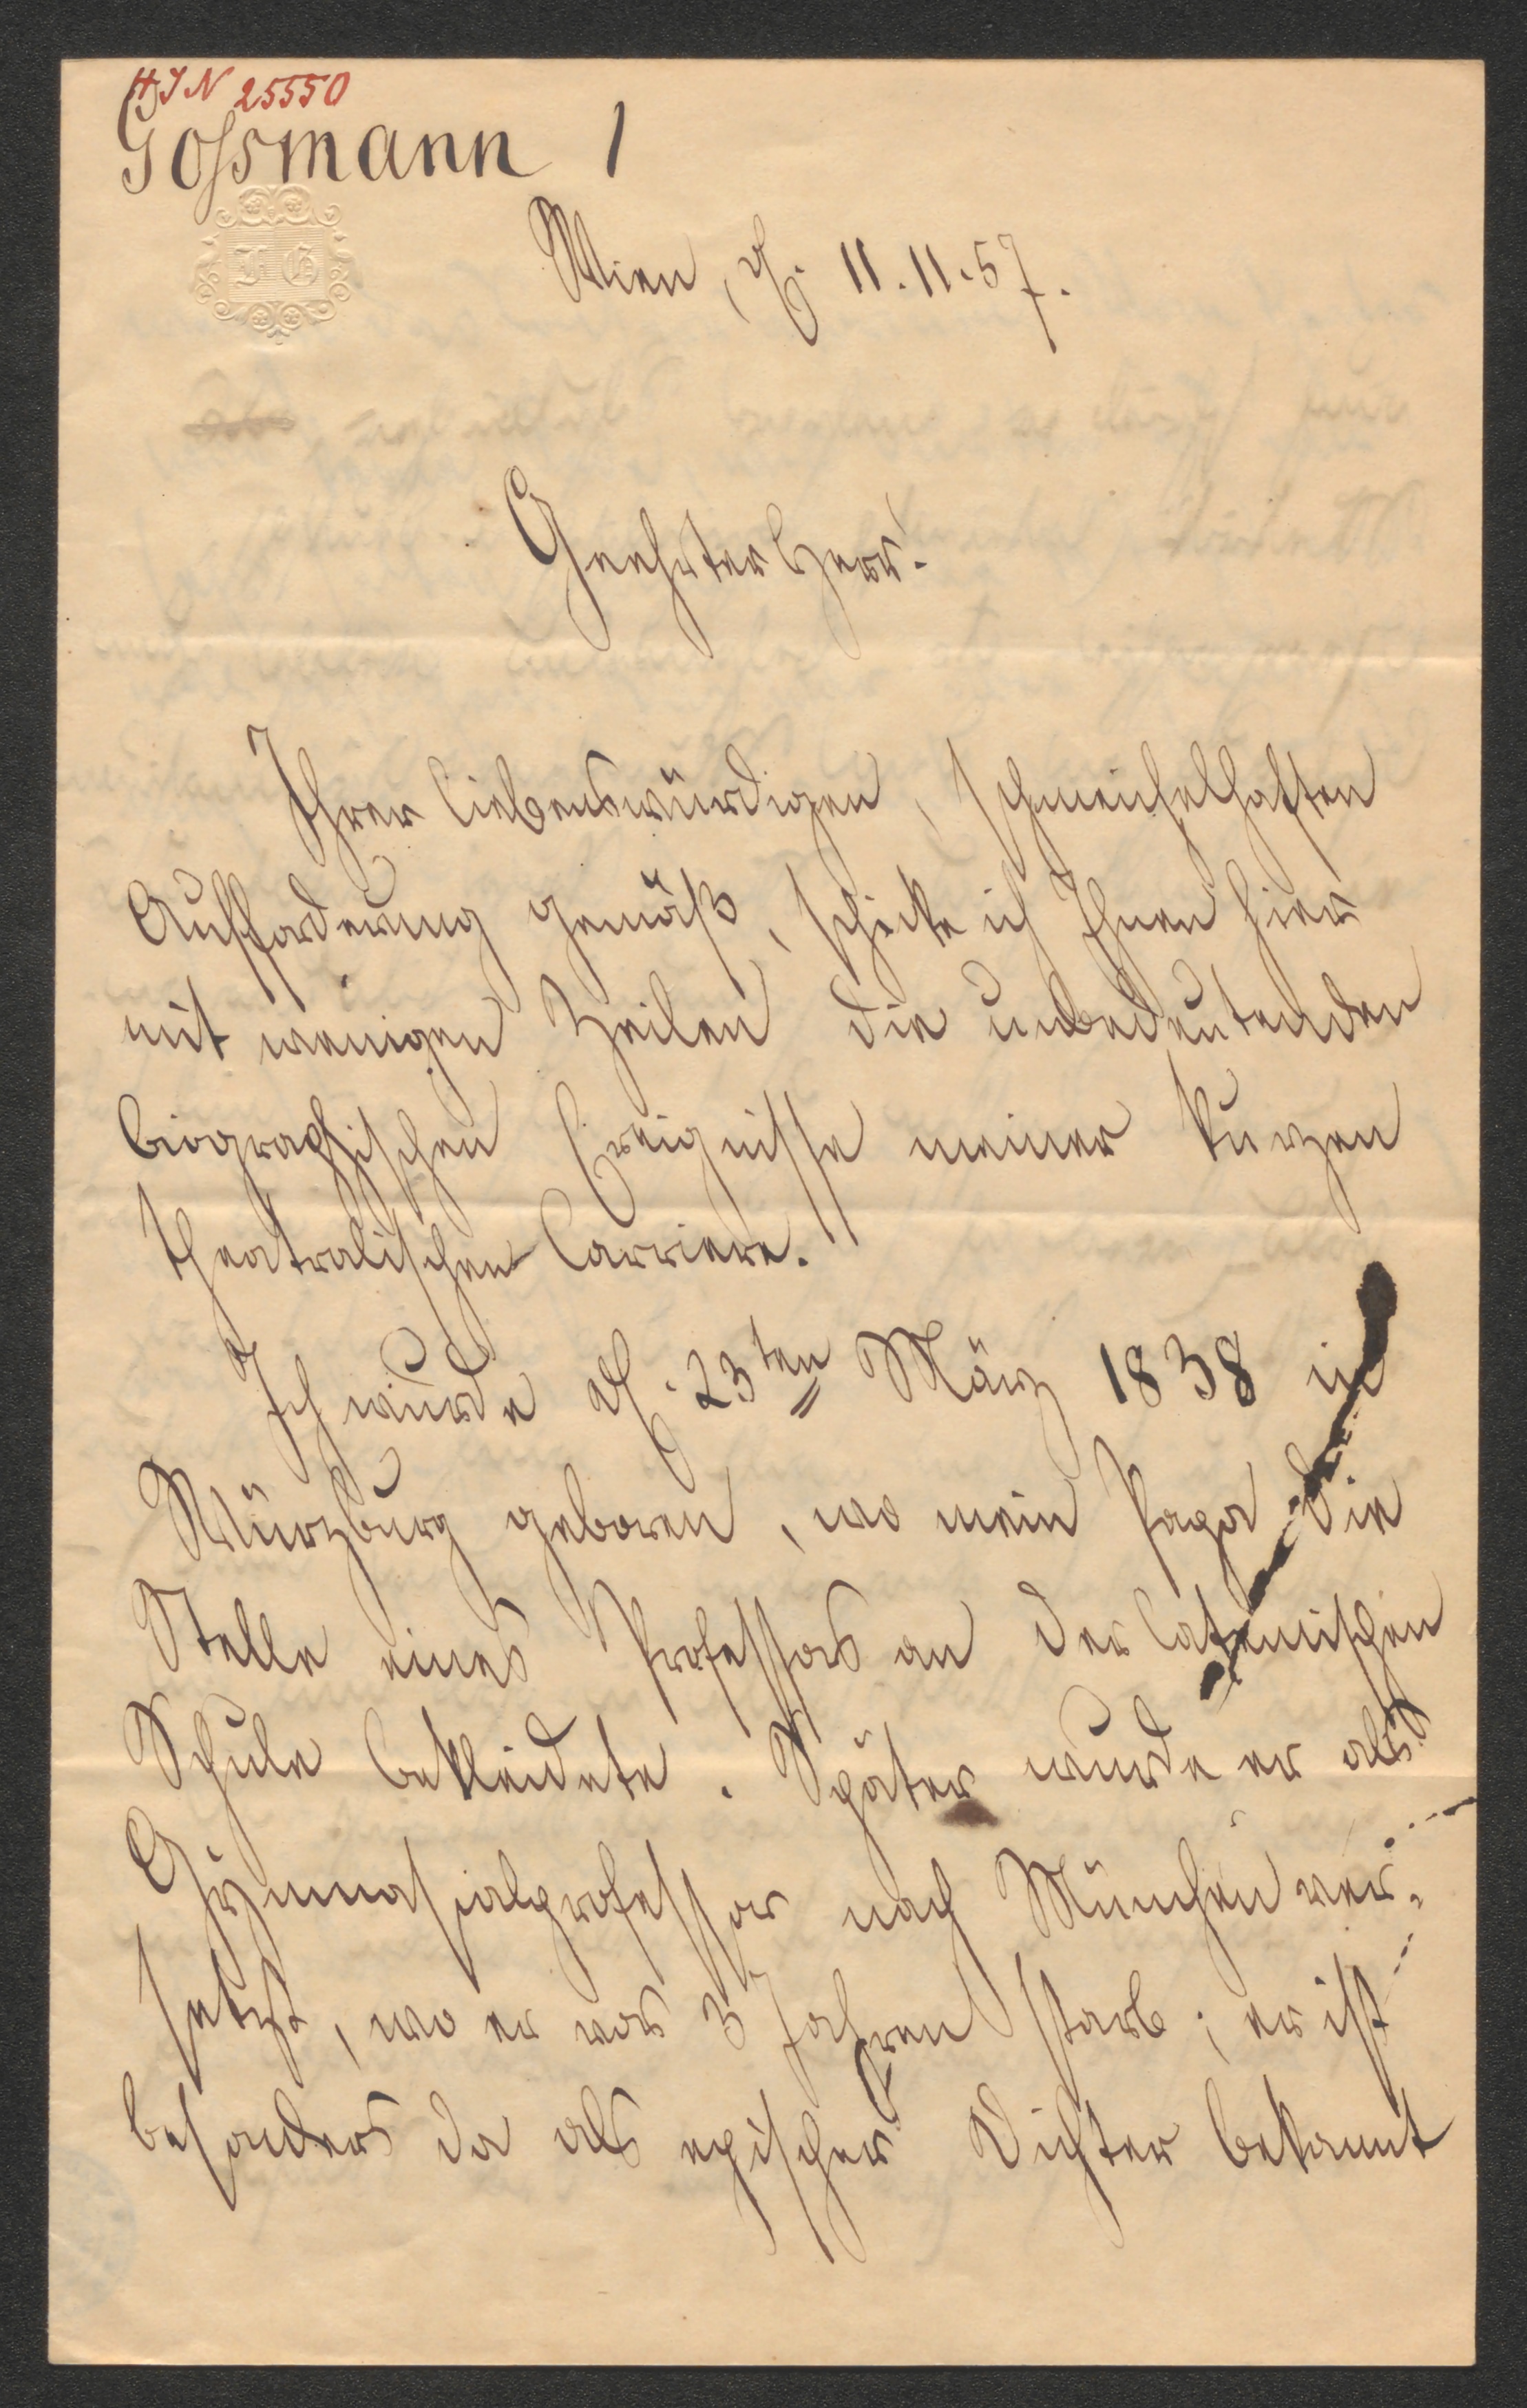 HIN 25550
Gossmann 1
FG
Wien, d. 11.11.57.
Geehrter Herr!
Ihrer liebenswürdigen, schmeichelhaften
Aufforderung gemäß, schicke ich Ihnen hier
mit wenigen Zeilen die unbedeutenden
biographischen Ereignisse meiner kurzen
theatralischen Carriere.
Ich wurde d. 23ten März 1838 in
Würzburg geboren, wo mein Papa die
Stelle eines Professors an der lateinischen
Schule bekleidete. Später wurde er als
Gÿmnasialprofessor nach München ver-
setzt, wo er vor 3 Jahren starb; er ist
besonders da als epischer Dichter bekannt